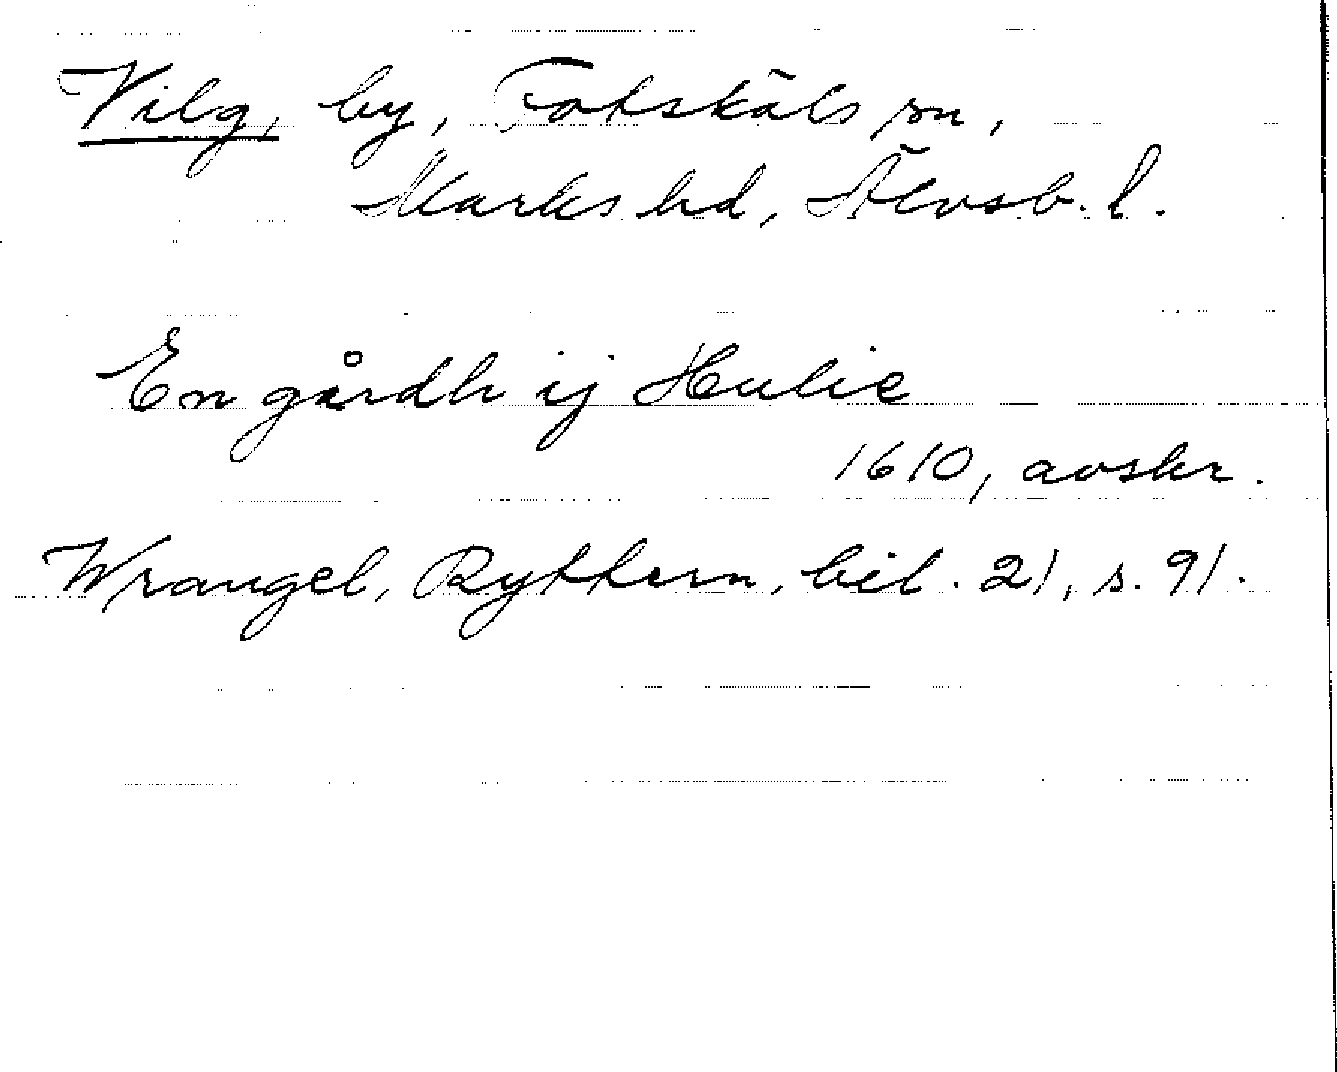 Vilg, by, Fotskäls sn,
Marks hd, Älvsb. l.
En gårdh ij Hulie
1610, avskr.
Wrangel, Ryttern, bil. 21, s. 91.